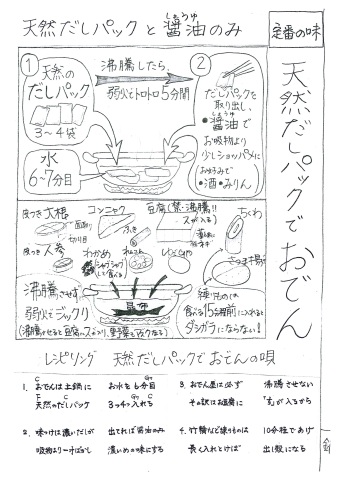 天然だしパックと醤油のみ
しょうゆ
定番の味
天然だしパックでおでん
①
天然の
だしパック
3〜4袋
水
6〜7分目
沸騰したら、
弱火でトロトロ5分間
②
だしパックを
取り出し、
しょうゆ
・醤油で
お吸物より
少しショッパメに
(お好みで
・酒・みりん
皮つき大根
面取り
切り目
コンニャク
豆腐(禁・沸騰!!
スが入る)
ちくわ
皮つき人参
わかめ
(シャブシャブ
して食べる)
ふき
さつま揚
沸騰させず、
弱火でジックリ
昆布
練りものは
食べる15分程前に入れると
ダシガラにならない!
レシピリング 天然だしパックでおでんの唄
1. おでんは土鍋に お水を6分目
天然のだしパック 3つ4つ入れる
2. 味つけは濃いだしが 出てれば醤油のみ
吸物より一寸ばかし 濃いめの味にする
3. おでん屋は必ず 沸騰させない
その訳はお豆腐に 「す」が入るから
4. 竹輪など練りものは 10分程であげ
長く入れとけば 出し殻になる